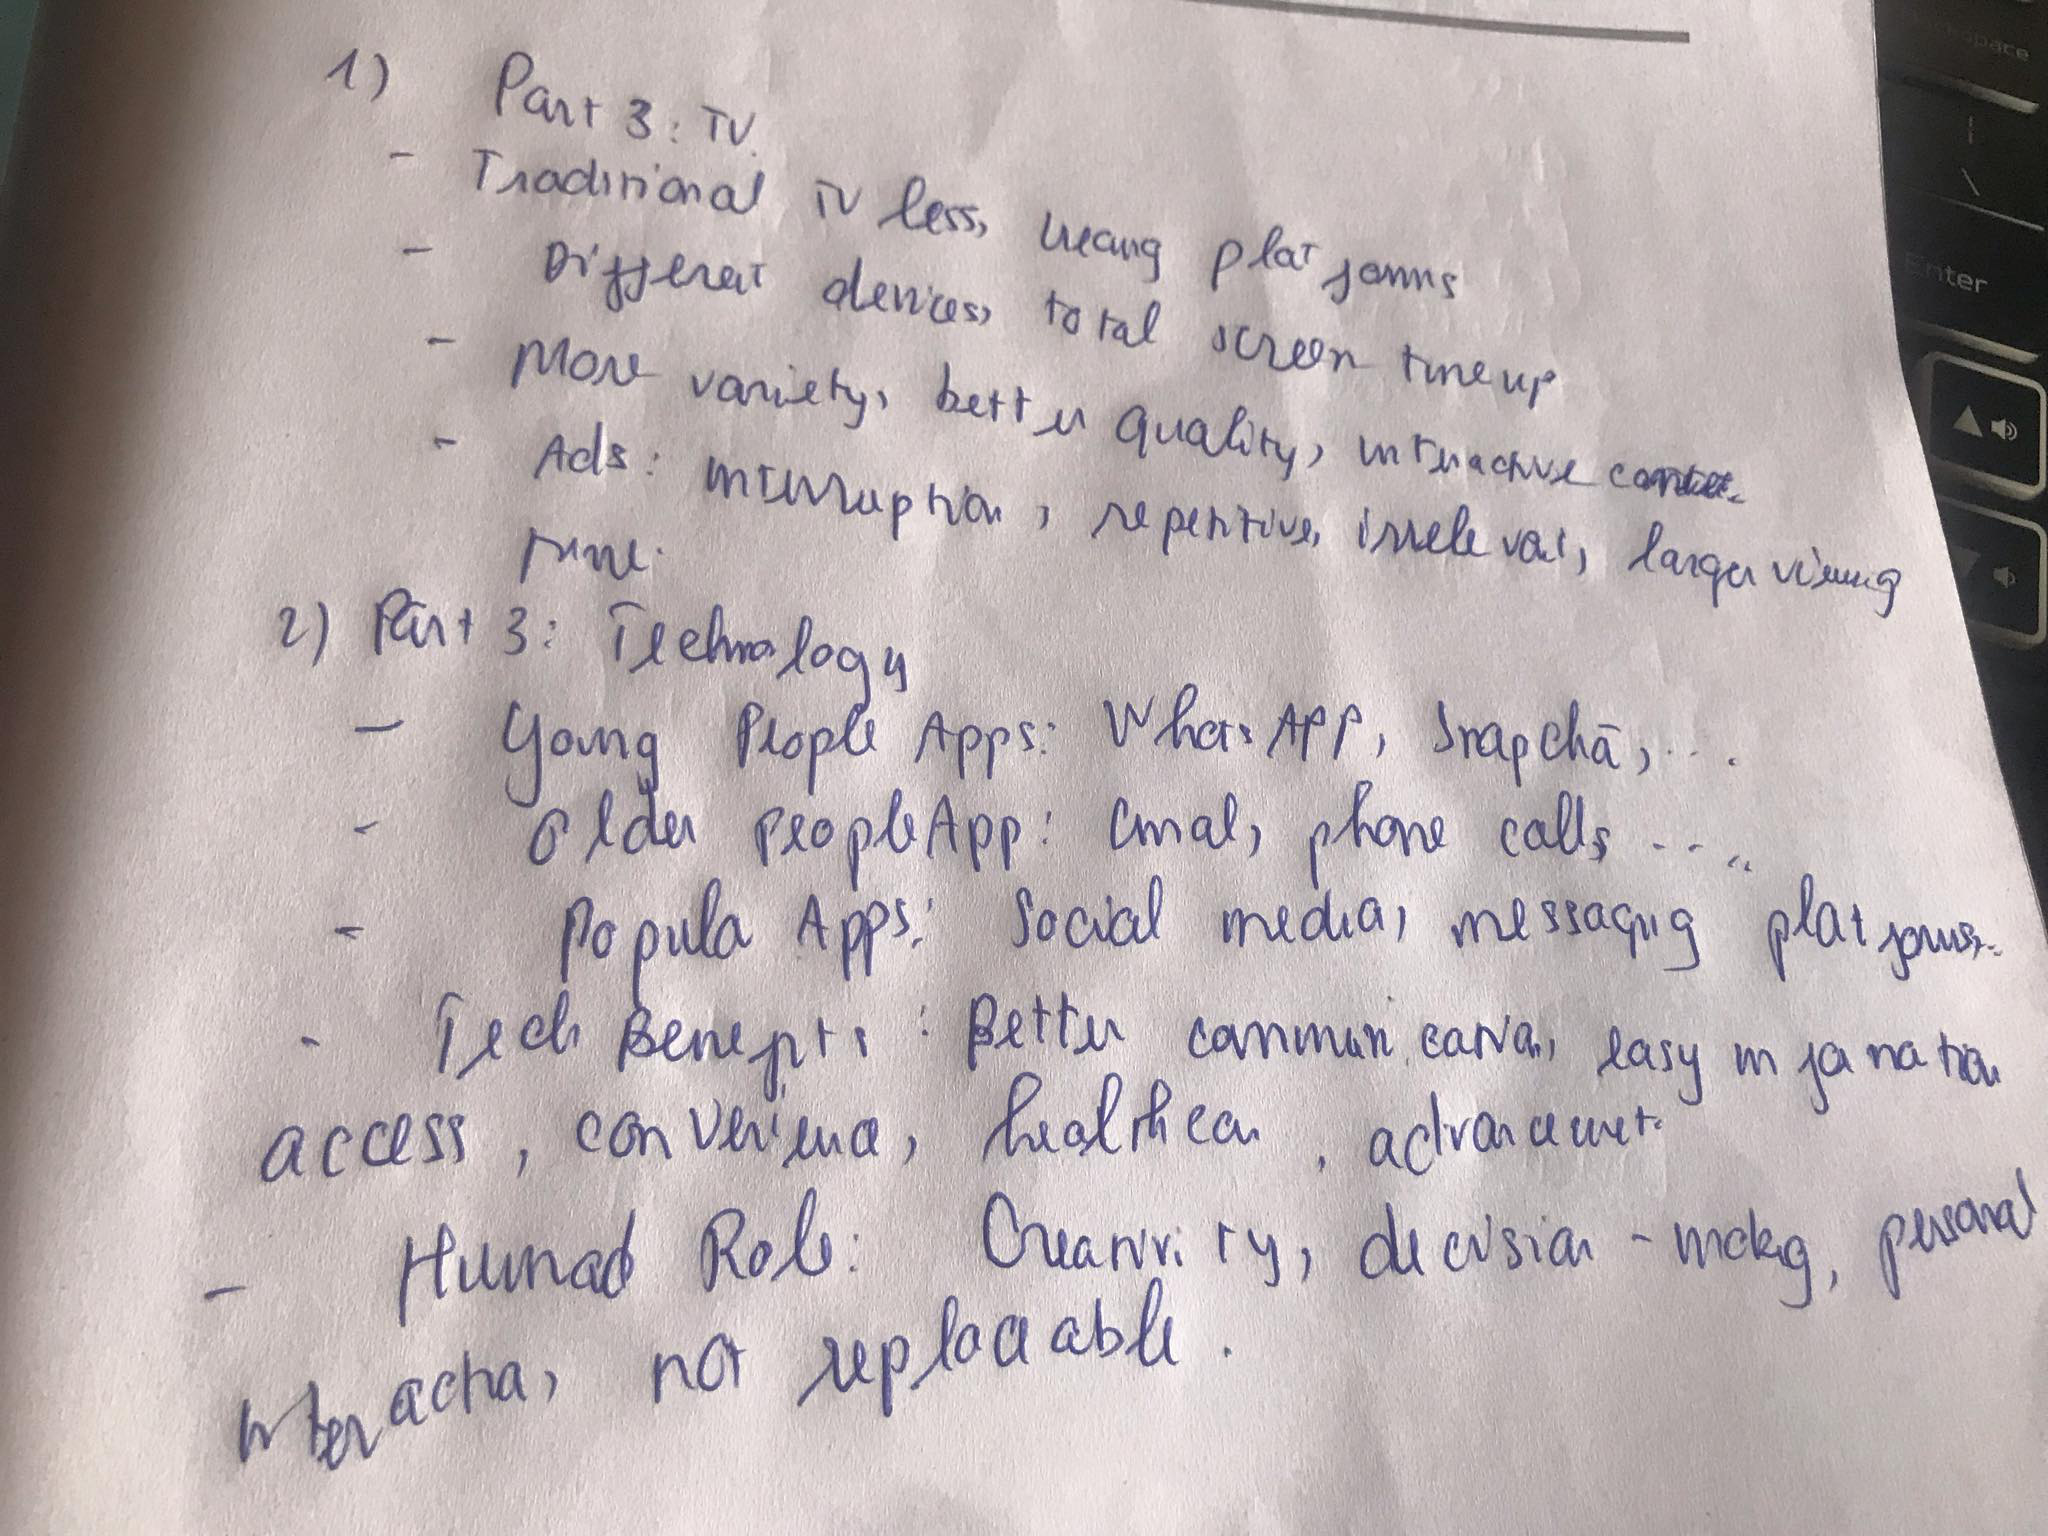 1) Part 3: TV.
- Traditional TV less, platforms
- Different devices, total screen time up
- More variety, better quality, interactive
- Ads: interruption, repetitive, irrelevat, larger viewing
time.
2) Part 3: Technology
- Young People Apps: WhatsAPP, Snapcha, ...
- Older People App: Email, phone calls ....
- Popula Apps: Social media, messaging platforms.
- Tech Benefits: Better communication, easy information
access, convenience, healthcar, advancement.
- Human Role: Creativity, decision-making, personal
interaction, not replaceable.
Enter